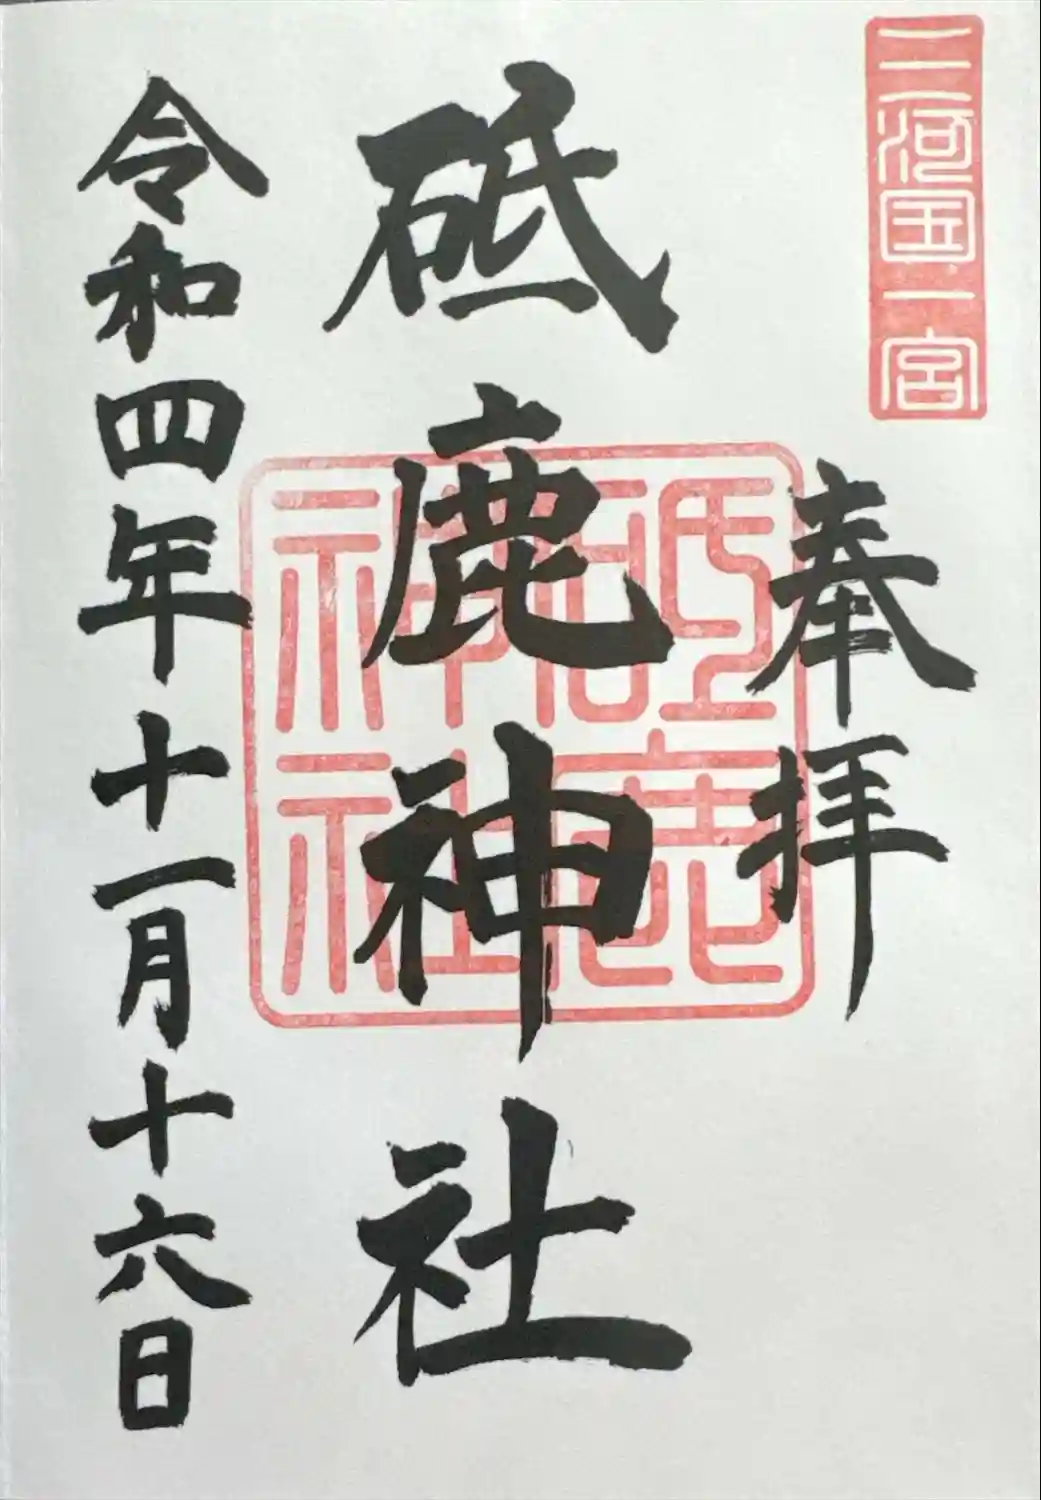 三河国一宮
奉拝
砥鹿神社
砥鹿神社
令和四年十一月十六日